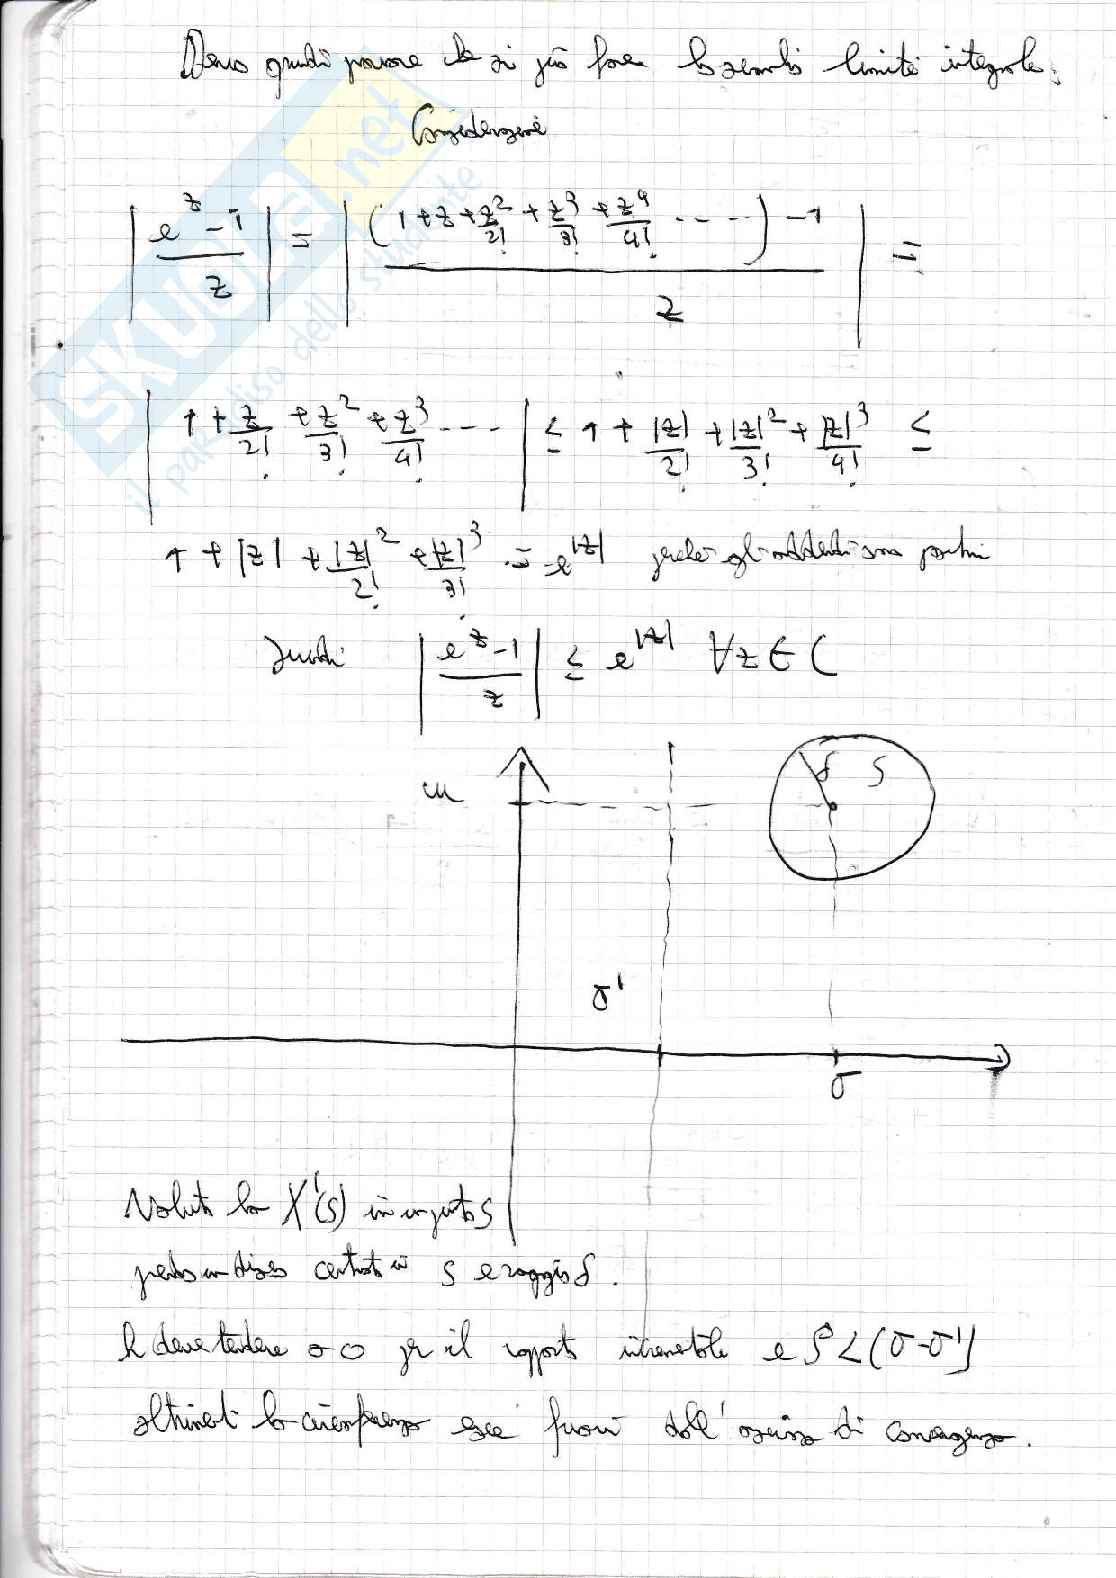 Devo quindi provare che si può fare lo scambio limite integrale.
Considerazione
| (e^z - 1) / z | = | ((1 + z + z^2/2! + z^3/3! + z^4/4! ....) - 1) / z | =
| 1 + z/2! + z^2/3! + z^3/4! ... | ≤ 1 + |z|/2! + |z|^2/3! + |z|^3/4! ≤
1 + |z| + |z|^2/2! + |z|^3/3! .. = e^|z| perché gli addendi sono positivi
quindi | (e^z - 1) / z | ≤ e^|z| ∀z ∈ C
δ S
σ'
σ
Valuto la X'(s) in un punto s
prendo un disco centrato in s e raggio δ.
h deve tendere a 0 per il rapporto incrementale e δ < (σ-σ')
altrimenti la circonferenza esce fuori dall'ascissa di convergenza.
SKUOLA.net
il paradiso dello studente